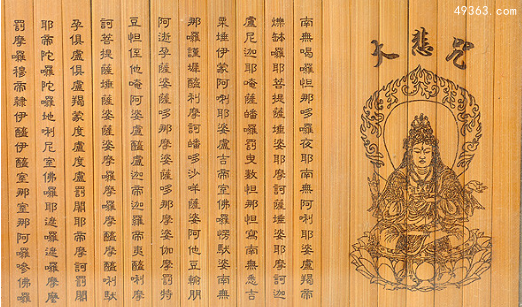 49363.com
大悲咒
南無喝囉怛那哆囉夜耶南無阿唎耶婆盧羯帝
爍缽囉耶菩提薩埵婆耶摩訶薩埵婆耶摩訶迦
盧尼迦耶唵薩皤囉罰曳數怛那怛寫南無悉吉
栗埵伊蒙阿唎耶婆盧吉帝室佛囉楞馱婆南無
那囉謹墀醯利摩訶皤哆沙咩薩婆阿他豆輸朋
阿逝孕薩婆薩哆那摩婆薩哆那摩婆伽摩罰特
豆怛侄他唵阿婆盧醯盧迦帝迦羅帝夷醯唎摩
訶菩提薩埵薩婆薩婆摩囉摩囉摩醯摩醯唎馱
孕俱盧俱盧羯蒙度盧度盧罰闍耶帝摩訶罰闍
耶帝陀囉陀囉地唎尼室佛囉耶遮囉遮囉摩摩
罰摩囉穆帝隸伊醯伊醯室那室那阿囉嘇佛囉